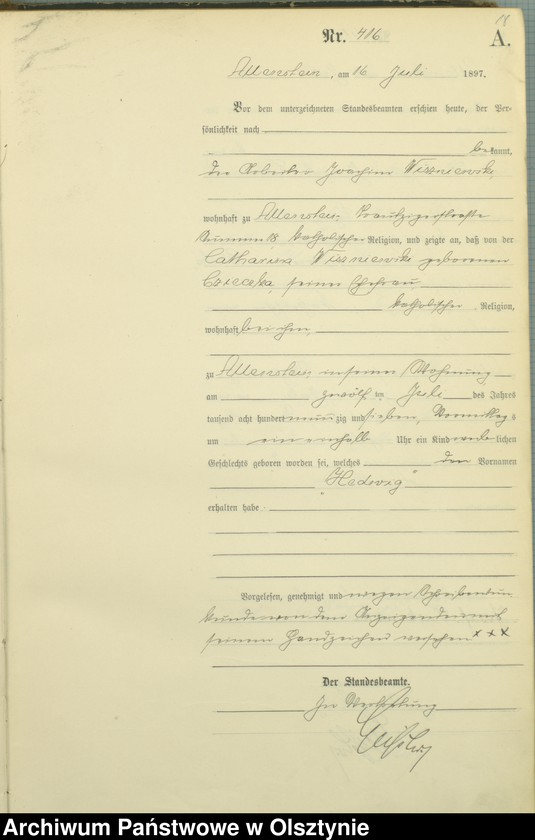 18
Nr. 416 A.
Allenstein, am 16 Juli 1897.
Vor dem unterzeichneten Standesbeamten erschien heute, der Per-
sönlichkeit nach
bekannt,
der Arbeiter Joachim Wiszniewski,
wohnhaft zu Allenstein,
Nummer 18, katholischer Religion, und zeigte an, daß von der
Catharina Wiszniewski geborenen
seiner Ehefrau
katholischer Religion,
wohnhaft bei ihm,
zu Allenstein in seiner Wohnung
am zwölften Juli des Jahres
tausend acht hundert neunzig und sieben, Vormittags
um ein einhalb Uhr ein Kind weiblichen
Geschlechts geboren worden sei, welches den Vornamen
"Hedwig"
erhalten habe
Vorgelesen, genehmigt und wegen Schreibensun-
kunde von dem Anzeigenden mit
seinem Handzeichen versehen xxx
Der Standesbeamte.
In Vertretung
Archiwum Państwowe w Olsztynie